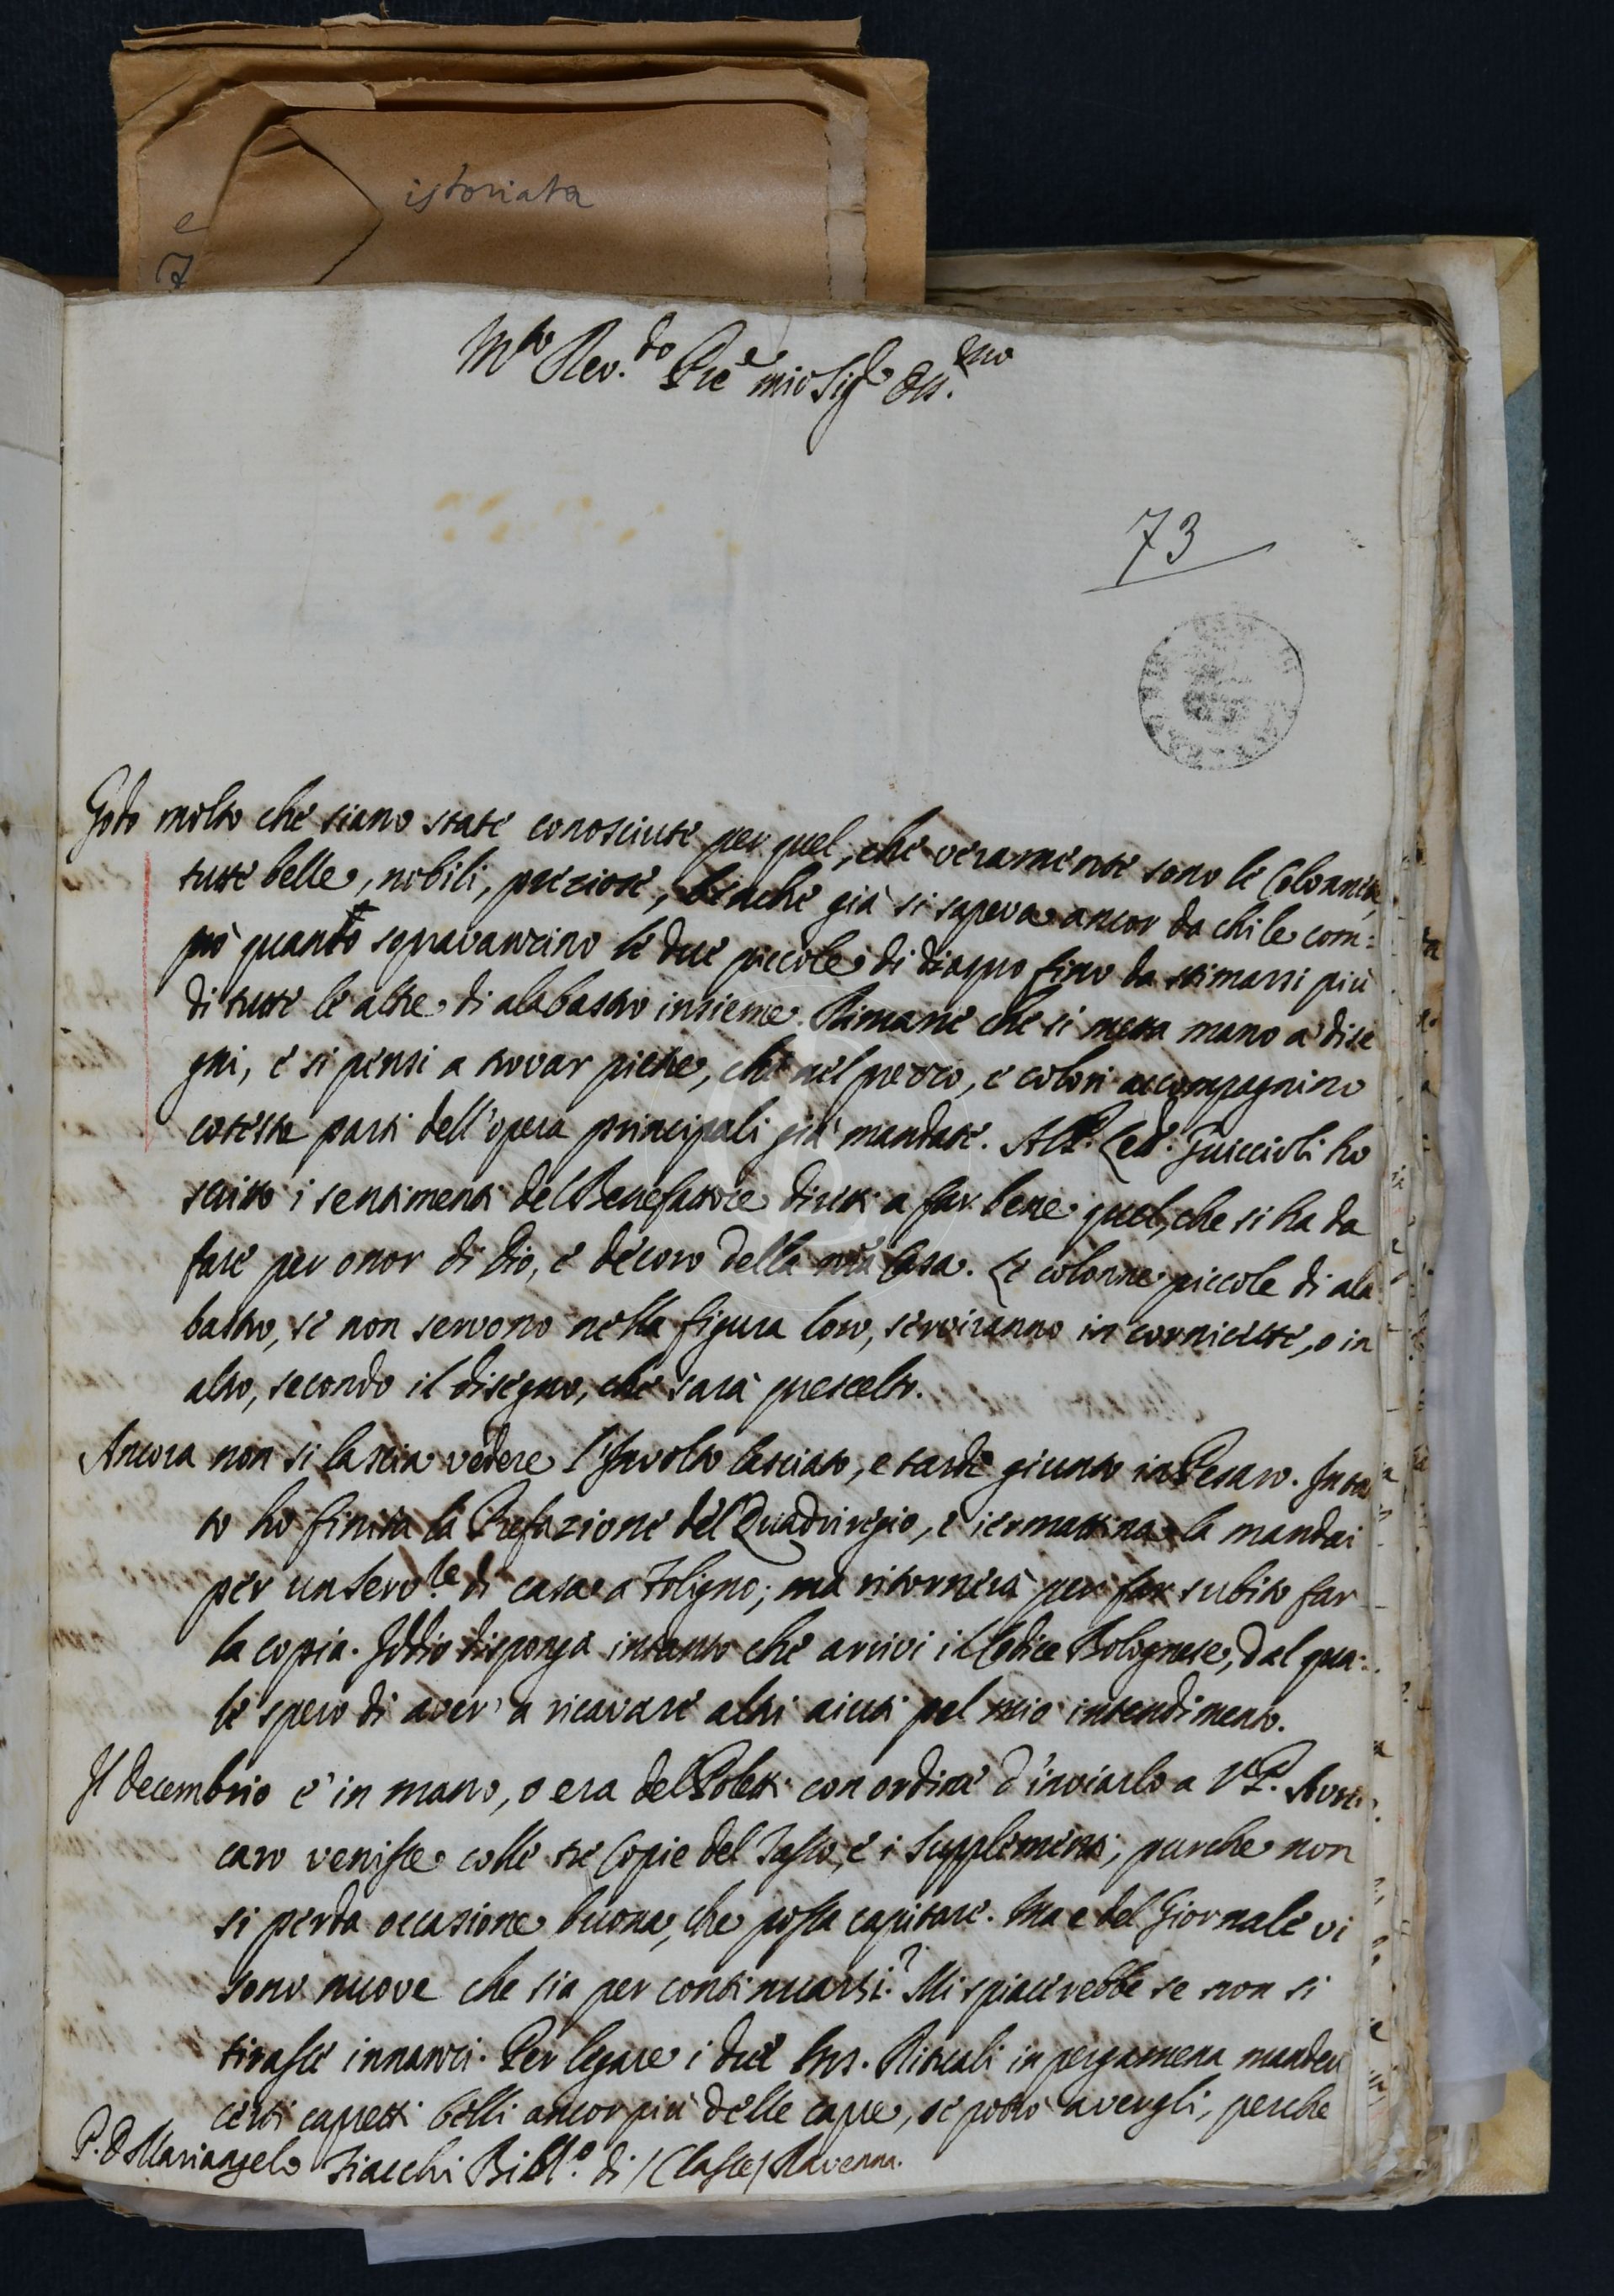 istoriata
e
7
M.to Rev.do Pre mio Sig.e Oss.mo
73
Godo molto che siano state conosciute per quel, che veramente sono le Colonnette
tutte belle, nobili, preziose, benche già si sapeva ancor da chi le com:
prò quanto sopravanzino le due piccole di diaspro fino da stimarsi più
di tutte le altre di alabastro insieme. Rimane che si metta mano a' dise
gni, e si pensi a trovar pietre, che nel prezzo, e colori accompagnino
coteste parti dell'opera principali già mandate. Al P. Led. Guiccioli ho
scritto i sentimenti del Benefattore diretti a far bene quel, che si ha da
fare per onor di Dio, e decoro della nra Casa. Le colonne piccole di ala
bastro, se non servono nella figura loro, serviranno in cornicette, o in
altro, secondo il disegno, che sarà prescelto.
Ancora non si lascia vedere l'Involto lasciato, e tardi giunto in Pesaro. Intan
to ho finita la Prefazione del Quadriregio, e iermattina la mandai
per un Serv.le di casa a Foligno; ma ritornerà per far subito far
la copia. Iddio disponga intanto che arrivi il Codice Bolognese, dal qua:
le spero di aver a ricavare altri aiuti pel mio intendimento.
Il decembrio è in mano, o era del Poletti con ordine d'inviarlo a V.P. Avrei
caro venisse colle tre Copie del Tasso, e i Supplementi, purche non
si perda occasione buona, che possa capitare. Ma e del Giornale vi
sono nuove che sia per continuarsi? Mi spiacerebbe se non si
tirasse innanzi. Per legare i due Mss. Rituali in pergamena manderò
certi capretti belli ancor più delle capre, se potrò avergli, perche
P. D. Mariangelo Fiacchi Bibl.o di /Classe/ Ravenna.